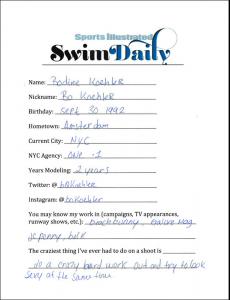 Sports Illustrated
SwimDaily
Name: Bodine Koehler
Nickname: Bo Koehler
Birthday: Sept 30 1992
Hometown: Amsterdam
Current City: NYC
NYC Agency: ONE -1
Years Modeling: 2 years
Twitter @ boKoehler
Instagram: @ boKoehler
You may know my work in (campaigns, TV appearances,
runway shows, etc.): beach bunny, Mag
JC penny,
The craziest thing I've ever had to do on a shoot is
do a crazy hard work out and try to look
sexy at the same time